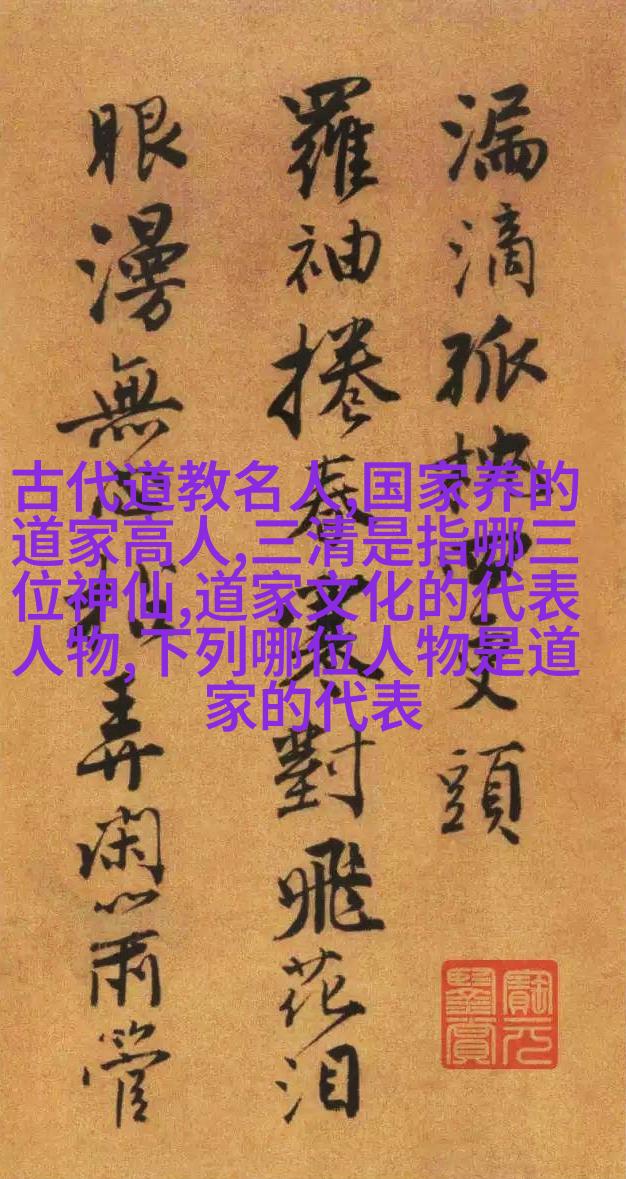 古代道教名人,国家养的
道家高人,三清是指哪三
位神仙,道家文化的代表
人物,下列哪位人物是道
家的代表
漏滴孤頭
羅袖捲對飛花泪
眼漫無弄閑心雨管